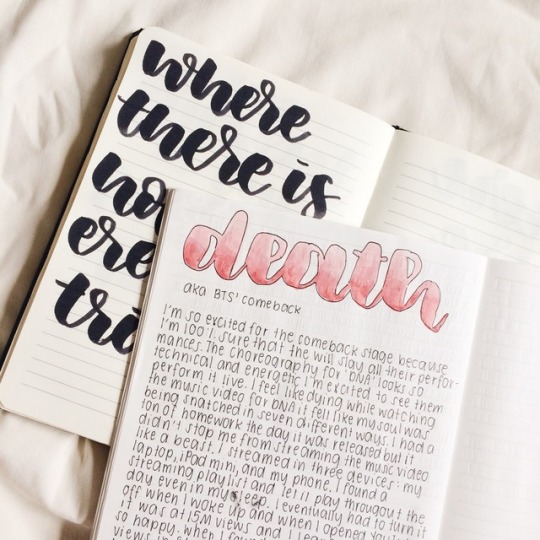 where
there is
no
ere
tra
death
aka BTS' comeback
I'm so excited for the comeback stage because
I'm 100% sure that the will slay all their perfor-
mances. The choreography for 'DNA' looks so
technical and energetic I'm excited to see them
perform it live. I feel like dying while watching
the music video for DNA it fell like my soul was
being snatched in seven different ways. I had a
ton of homework the day it was released but it
didn't stop me from streaming the music video
like a beast. I streamed in three devices: my
laptop, iPad mini, and my phone. I found a
streaming playlist and let it play througout the
day even in my sleep. I eventually had to turn it
off when I woke up and when I opened
it was at 15M views and I
so happy. When I
views in